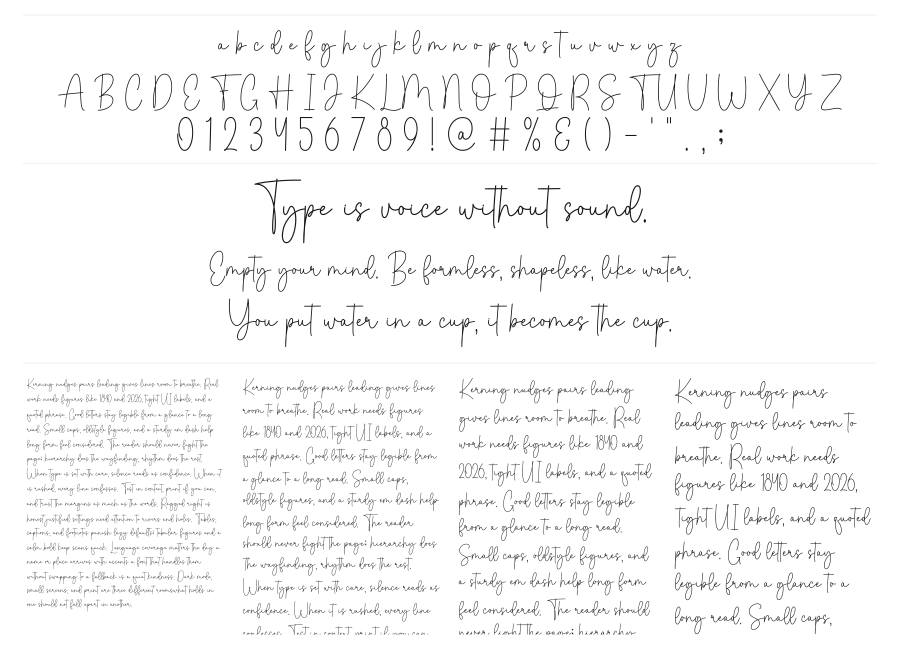 a b c d e f g h i j k l m n o p q r s t u v w x y z
A B C D E F G H I J K L M N O P Q R S T U V W X Y Z
0 1 2 3 4 5 6 7 8 9 ! @ # % & ( ) - ' " . , ;
Type is voice without sound.
Empty your mind. Be formless, shapeless, like water.
You put water in a cup, it becomes the cup.
Kerning nudges pairs leading gives lines room to breathe. Real
work needs figures like 1840 and 2026, tight UI labels, and a
quoted phrase. Good letters stay legible from a glance to a long
read. Small caps, oldstyle figures, and a sturdy em dash help
long form feel considered. The reader should never fight the
page: hierarchy does the wayfinding, rhythm does the rest.
When type is set with care, silence reads as confidence. When it
is rushed, every line confesses. Test in context, print if you can,
and trust the margins as much as the words. Ragged right is
honest justified settings need attention to rivers and holes. Tables,
captions, and footnotes punish lazy defaults tabular figures and a
calm bold keep scans quick. Language coverage matters the day a
name or place arrives with accents a font that handles them
without swapping to a fallback is a quiet kindness. Dark mode,
small screens, and print are three different rooms what holds in
one should not fall apart in another.
Kerning nudges pairs leading gives lines
room to breathe. Real work needs figures
like 1840 and 2026, tight UI labels, and a
quoted phrase. Good letters stay legible from
a glance to a long read. Small caps,
oldstyle figures, and a sturdy em dash help
long form feel considered. The reader
should never fight the page: hierarchy does
the wayfinding, rhythm does the rest.
When type is set with care, silence reads as
confidence. When it is rushed, every line
confesses. Test in context, print if you can,
Kerning nudges pairs leading
gives lines room to breathe. Real
work needs figures like 1840 and
2026, tight UI labels, and a quoted
phrase. Good letters stay legible
from a glance to a long read.
Small caps, oldstyle figures, and
a sturdy em dash help long form
feel considered. The reader should
never fight the page: hierarchy
Kerning nudges pairs
leading gives lines room to
breathe. Real work needs
figures like 1840 and 2026,
tight UI labels, and a quoted
phrase. Good letters stay
legible from a glance to a
long read. Small caps,